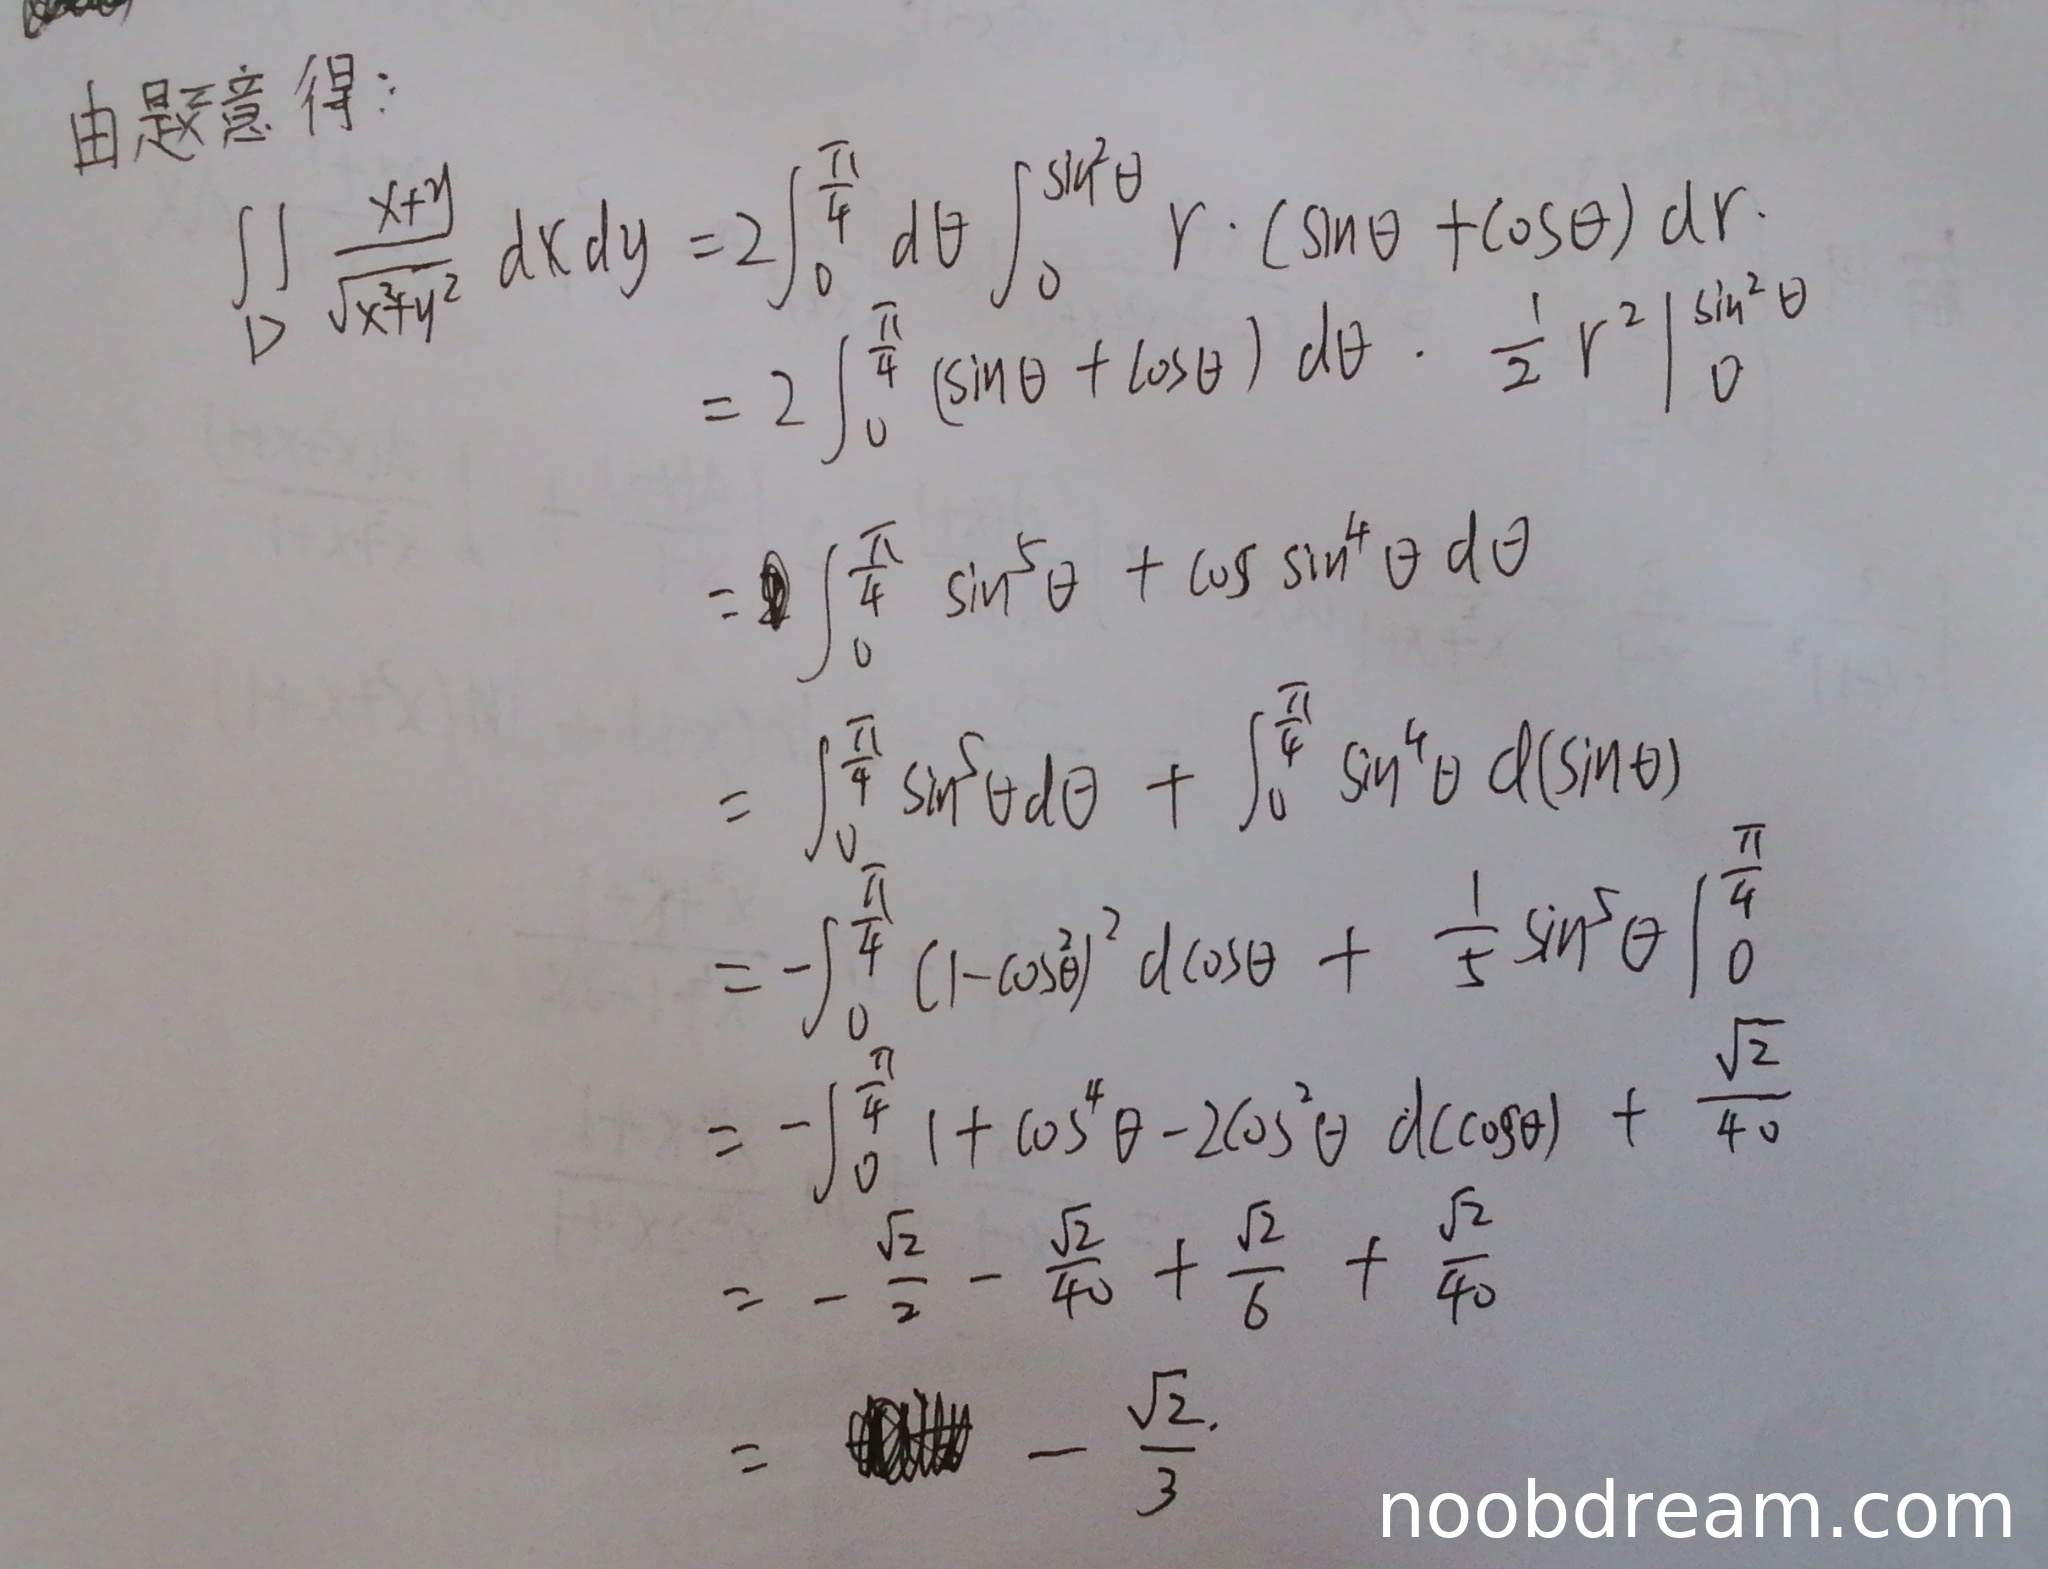 由题意得:
∬_D (x+y)/√(x²+y²) dxdy = 2∫_0^{π/4} dθ ∫_0^{sin²θ} r·(sinθ+cosθ) dr.
= 2∫_0^{π/4} (sinθ+cosθ) dθ · 1/2 r² |_0^{sin²θ}
= ∫_0^{π/4} sin⁵θ + cos sin⁴θ dθ
= ∫_0^{π/4} sin⁵θdθ + ∫_0^{π/4} sin⁴θ d(sinθ)
= -∫_0^{π/4} (1-cos²θ)² dcosθ + 1/5 sin⁵θ |_0^{π/4}
= -∫_0^{π/4} 1+cos⁴θ-2cos²θ d(cosθ) + √2/40
= - √2/2 - √2/40 + √2/6 + √2/40
= - √2/3.
noobdream.com